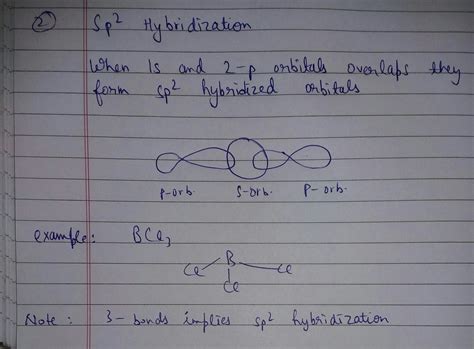 ② Sp² Hybridization
When 1s and 2-p orbitals overlaps they
form sp² hybridized orbitals
P-orb. S-orb. P-orb.
example: BCl₃
B
Cl Cl
Cl
Note : 3-bonds implies sp² hybridization